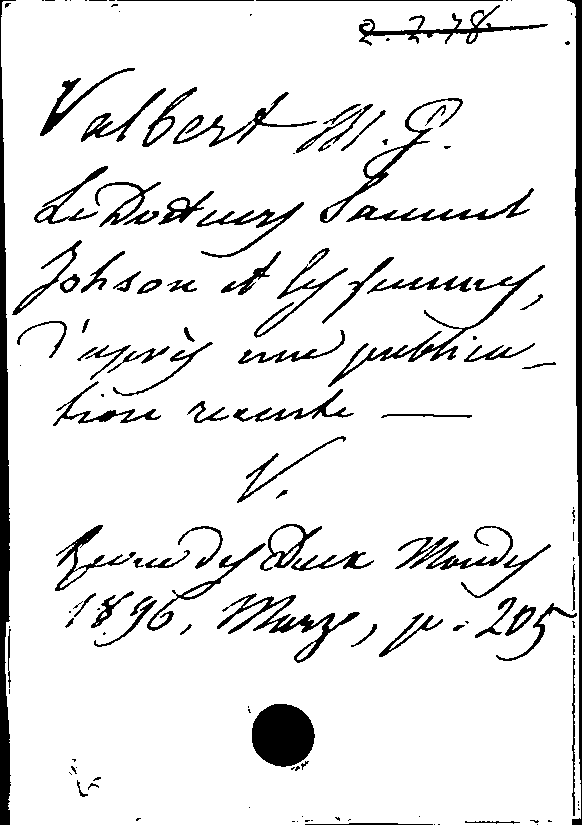 2.2.78
Valbert M. G.
Le Docteurs Samuel
Johson et les femmes,
d'après une publica-
tion recente —
V.
Revue des Deux Mondes
1896, Marzo, p. 205